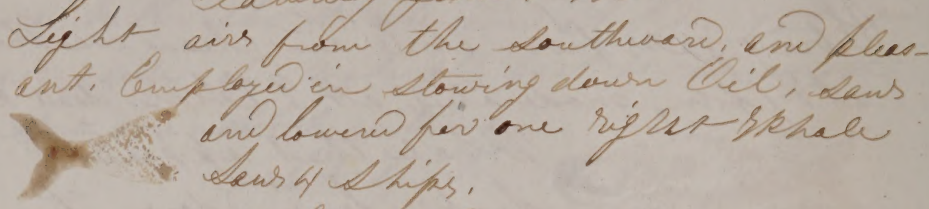 Light airs from the Southward, and pleas-
ant. Employed in stowing down Oil, saw
and lowered for one right Whale
Saw 4 Ships.